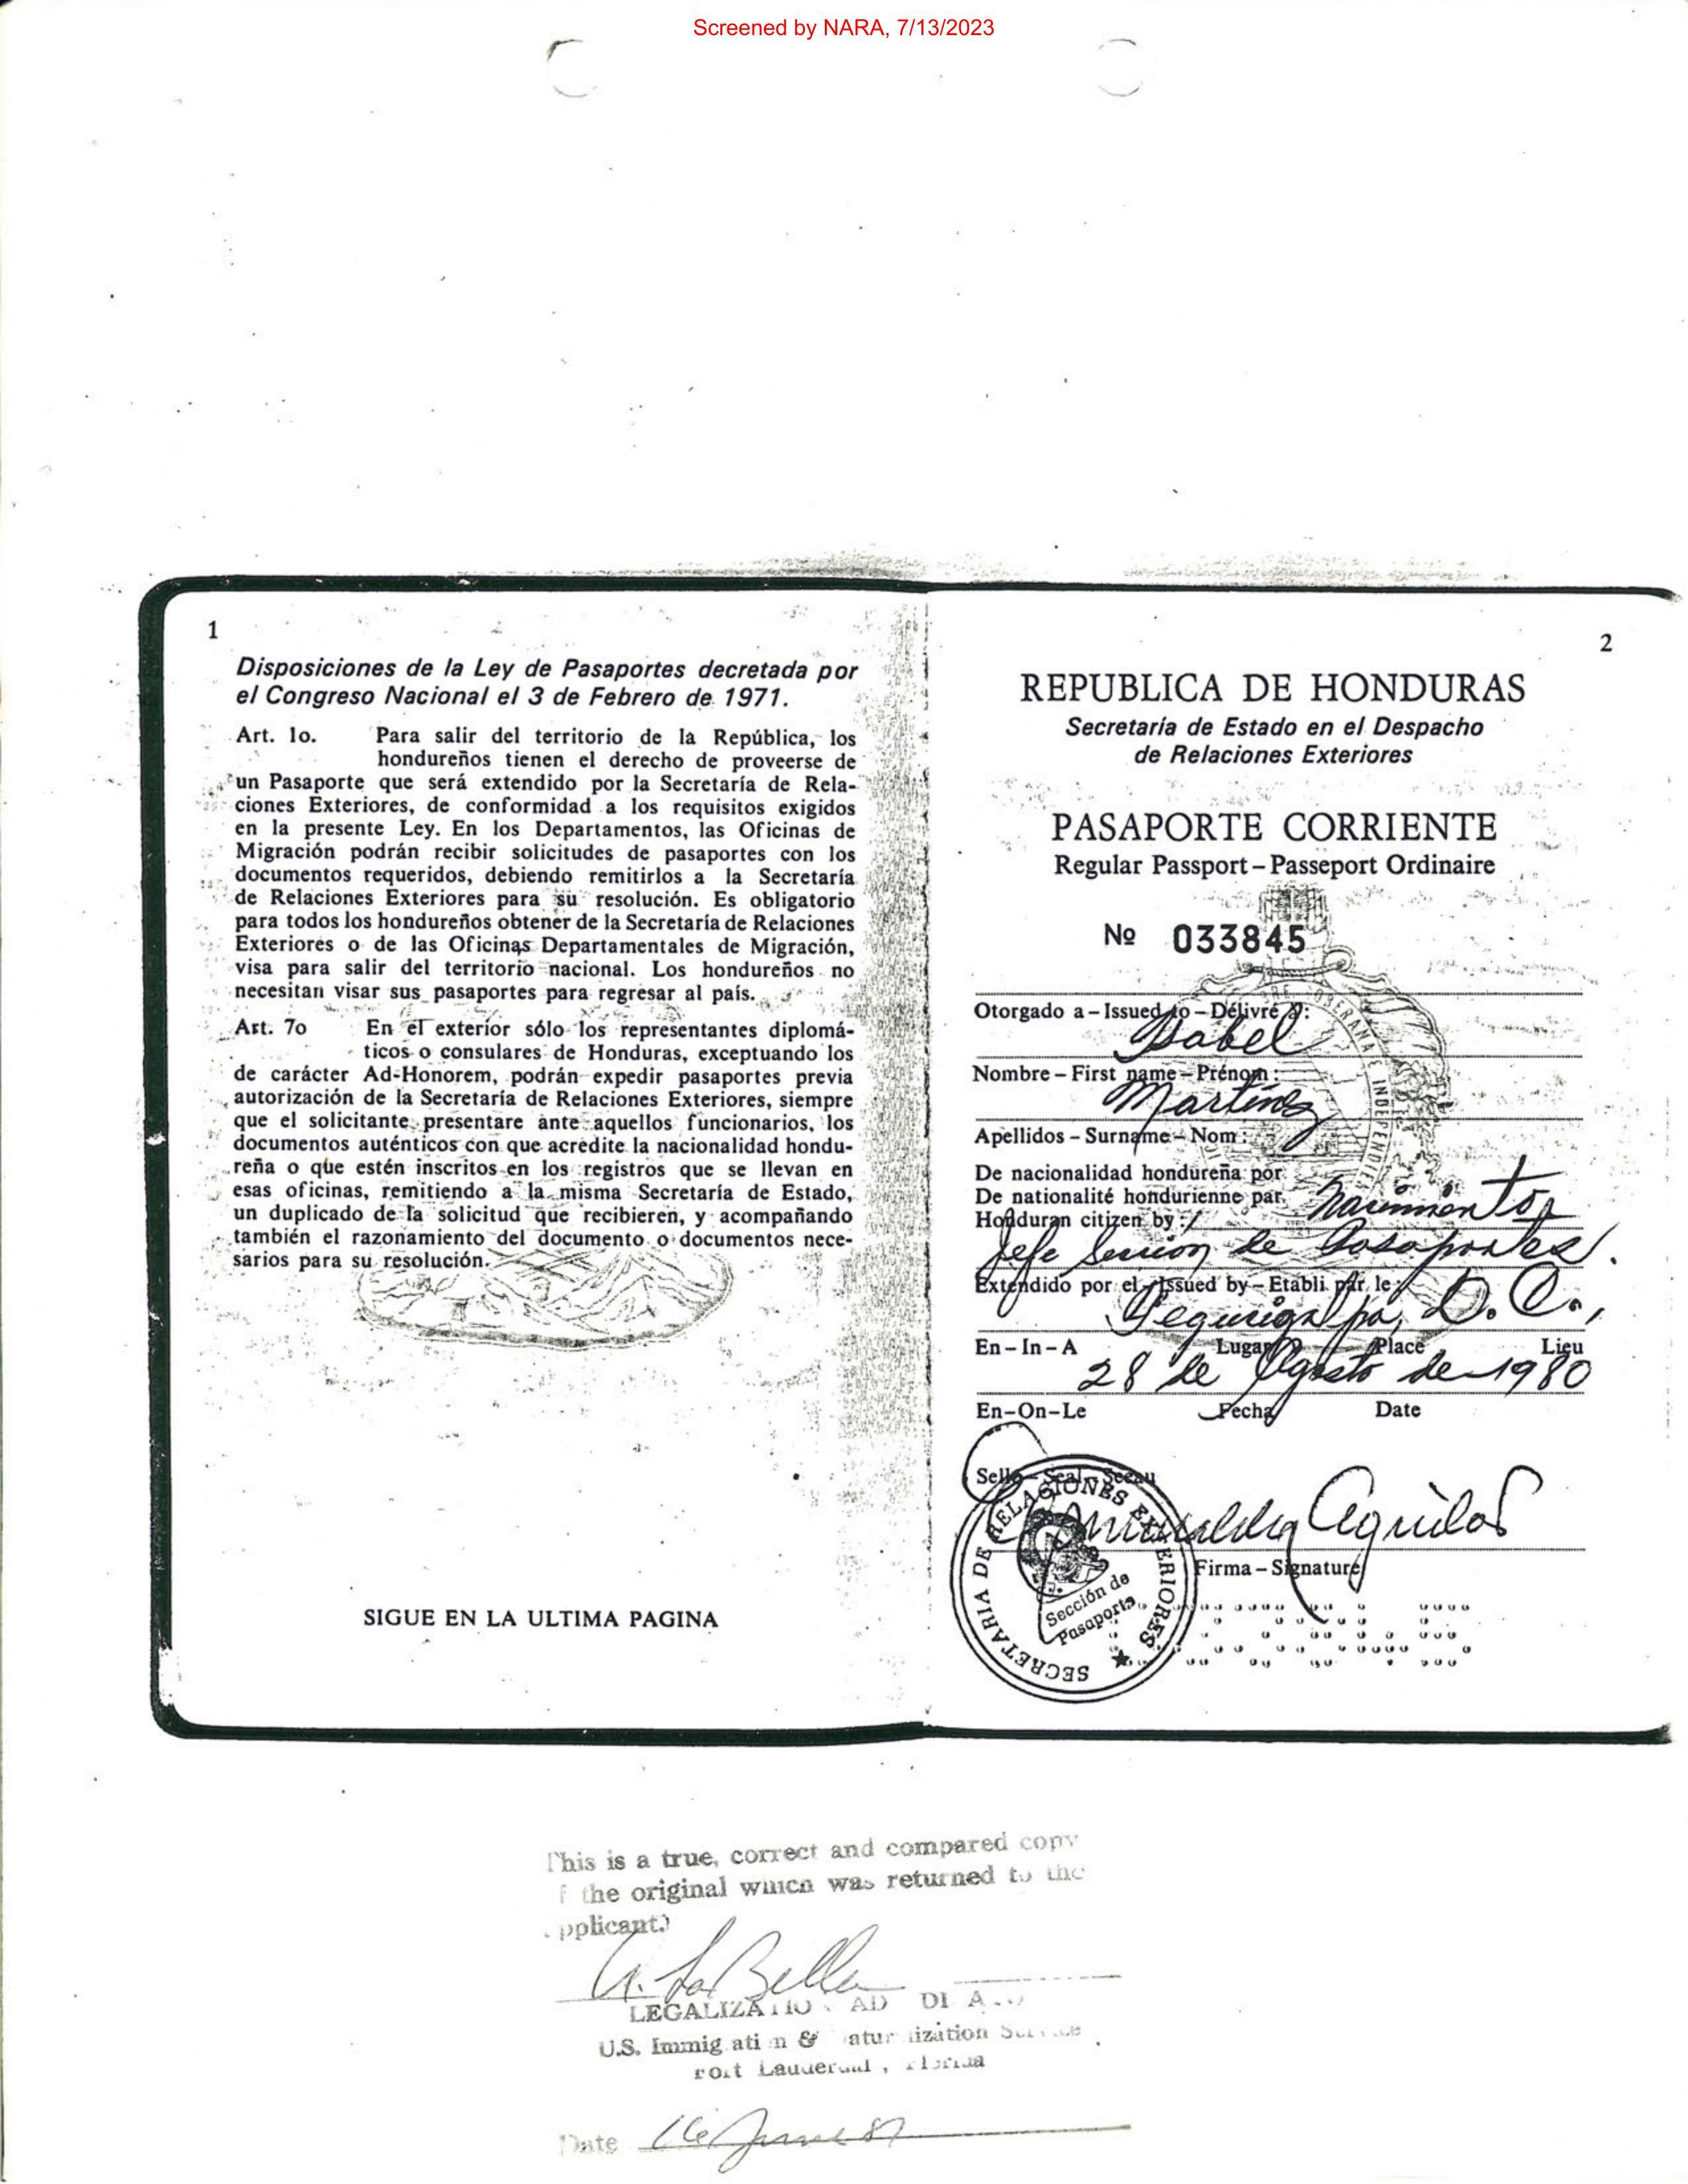 Screened by NARA, 7/13/2023
1
Disposiciones de la Ley de Pasaportes decretada por
el Congreso Nacional el 3 de Febrero de 1971.
Art. 1o. Para salir del territorio de la República, los
hondureños tienen el derecho de proveerse de
un Pasaporte que será extendido por la Secretaría de Rela-
ciones Exteriores, de conformidad a los requisitos exigidos
en la presente Ley. En los Departamentos, las Oficinas de
Migración podrán recibir solicitudes de pasaportes con los
documentos requeridos, debiendo remitirlos a la Secretaría
de Relaciones Exteriores para su resolución. Es obligatorio
para todos los hondureños obtener de la Secretaría de Relaciones
Exteriores o de las Oficinas Departamentales de Migración,
visa para salir del territorio nacional. Los hondureños no
necesitan visar sus pasaportes para regresar al país.
Art. 7o En el exterior sólo los representantes diplomá-
ticos o consulares de Honduras, exceptuando los
de carácter Ad-Honorem, podrán expedir pasaportes previa
autorización de la Secretaría de Relaciones Exteriores, siempre
que el solicitante presentare ante aquellos funcionarios, los
documentos auténticos con que acredite la nacionalidad hondu-
reña o que estén inscritos en los registros que se llevan en
esas oficinas, remitiendo a la misma Secretaría de Estado,
un duplicado de la solicitud que recibieren, y acompañando
también el razonamiento del documento o documentos nece-
sarios para su resolución.
SIGUE EN LA ULTIMA PAGINA
2
REPUBLICA DE HONDURAS
Secretaría de Estado en el Despacho
de Relaciones Exteriores
PASAPORTE CORRIENTE
Regular Passport – Passeport Ordinaire
Nº 033845
Otorgado a – Issued to – Délivré à:
Isabel
Nombre – First name – Prénom:
Martínez
Apellidos – Surname – Nom:
De nacionalidad hondureña por
De nationalité hondurienne par
Honduran citizen by:
Nacimiento
Jefe Sección de Pasaportes.
Extendido por el – Issued by – Etabli par le:
Tegucigalpa, D. C.,
En – In – A Lugar Place Lieu
28 de Agosto de 1980
En–On–Le Fecha Date
Sello – Seal – Sceau
SECRETARIA DE RELACIONES EXTERIORES
Sección de
Pasaportes
Aguilar
Firma – Signature
This is a true, correct and compared copy
f the original which was returned to the
pplicant.)
LaBella
LEGALIZATIO AD DI A
U.S. Immig ati n & atur lization Service
Fort Lauderdal , Florida
Date 16 June 87